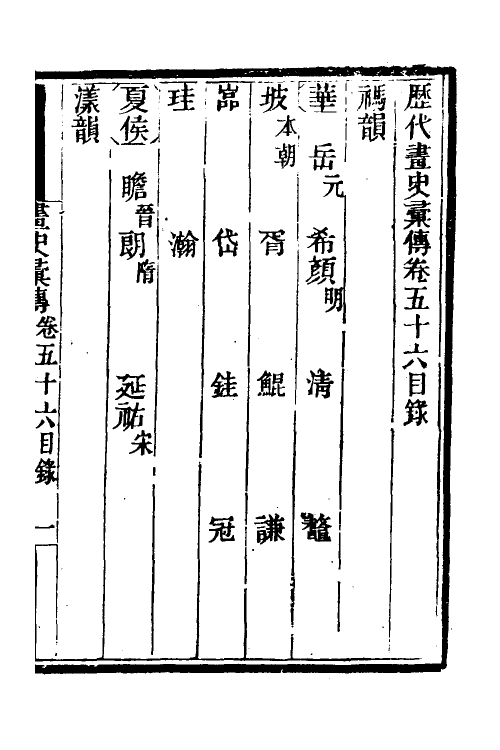 歷代畫史彙傳卷五十六目錄
禡韻
華 岳元 希顏明 清 鼇
坡本朝 胥 鯤 謙
嵓 岱 銈 冠
珪 瀚
夏侯 瞻晉 朗隋 延祐宋
漾韻
畫史彙傳卷五十六目錄 一